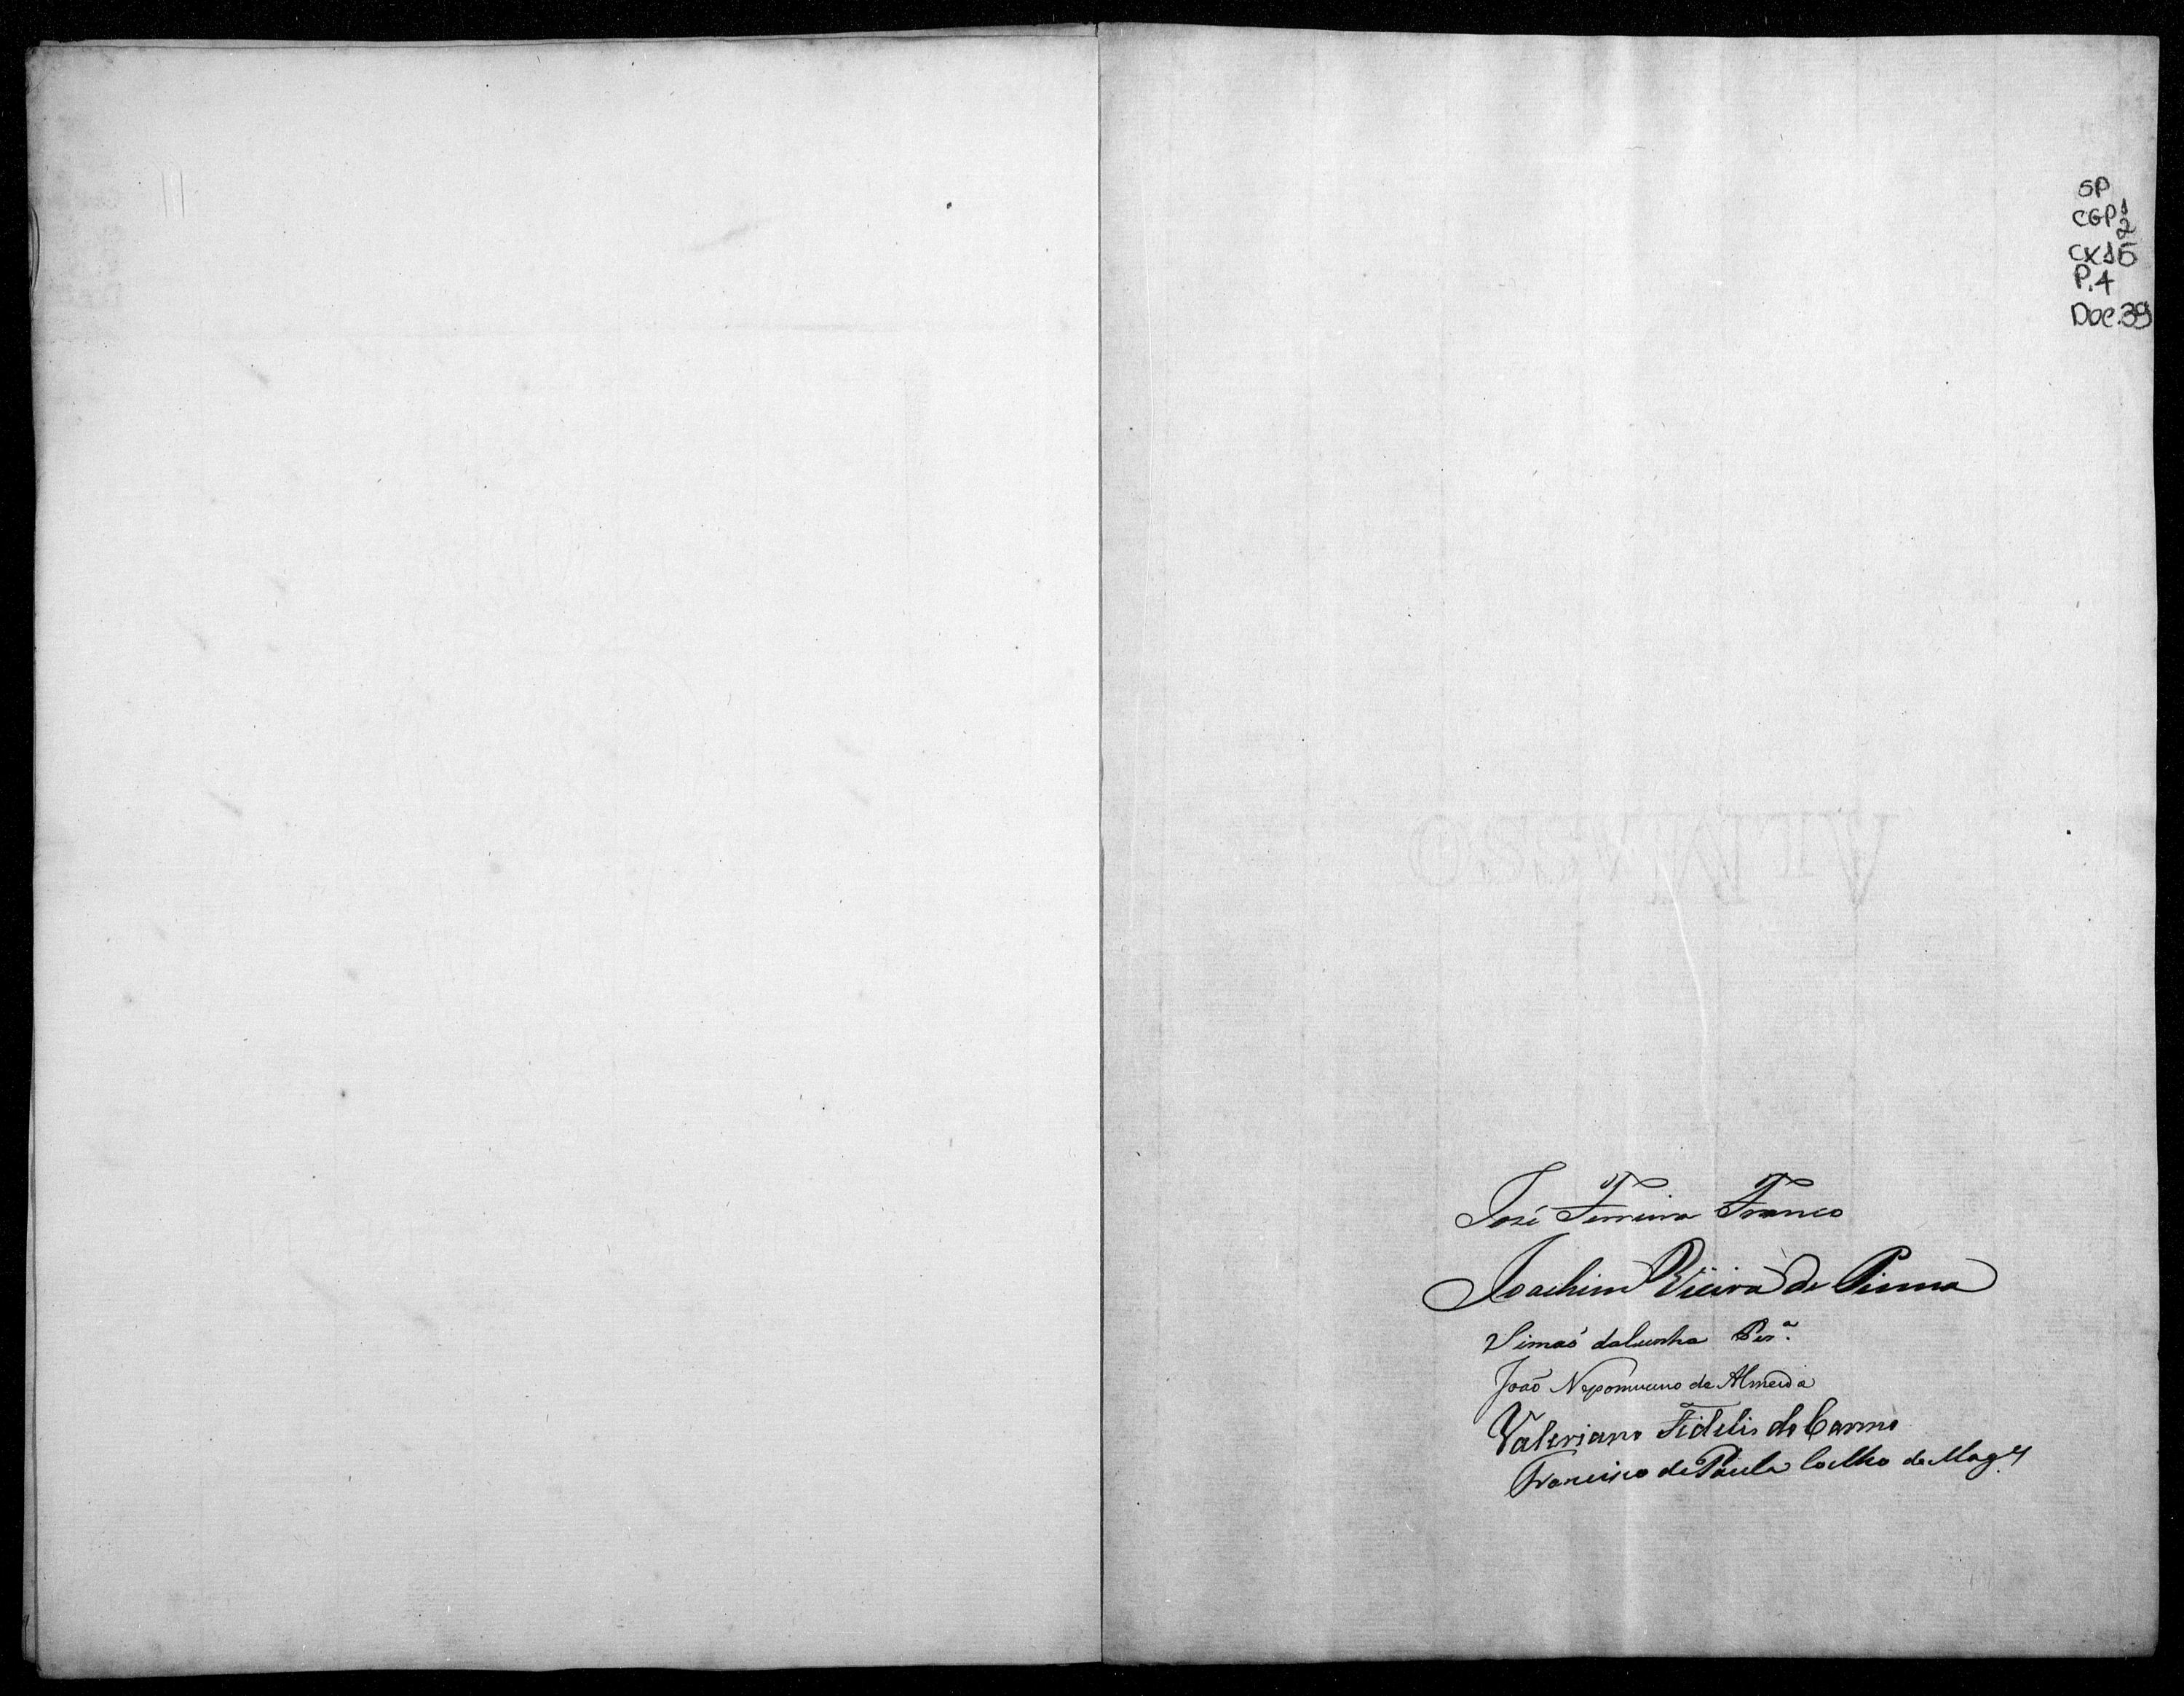 SP
CGP 1/2
CX15
P.4
Doc.39
José Ferreira Franco
Joachim Vieira de Pinna
Simaõ daCunha Per.ª
Joaõ Nepomuceno de Almeida
Valeriano Fidelis do Carmo
Francisco de Paula Coelho de Mag.es